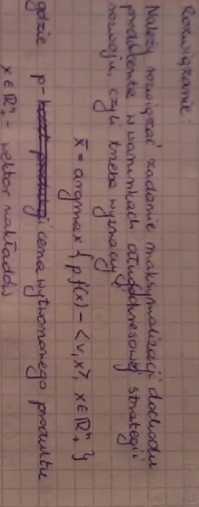 Rozwiązanie:
Należy rozwiązać zadanie maksymalizacji dochodu
producenta w warunkach długookresowej strategii
rozwoju, czyli trzeba wyznaczyć
x̄ = argmax { p f(x) - ⟨v, x⟩, x ∈ ℝⁿ₊ }
gdzie p - cena wytworzonego produktu
x ∈ ℝⁿ₊ - wektor nakładów